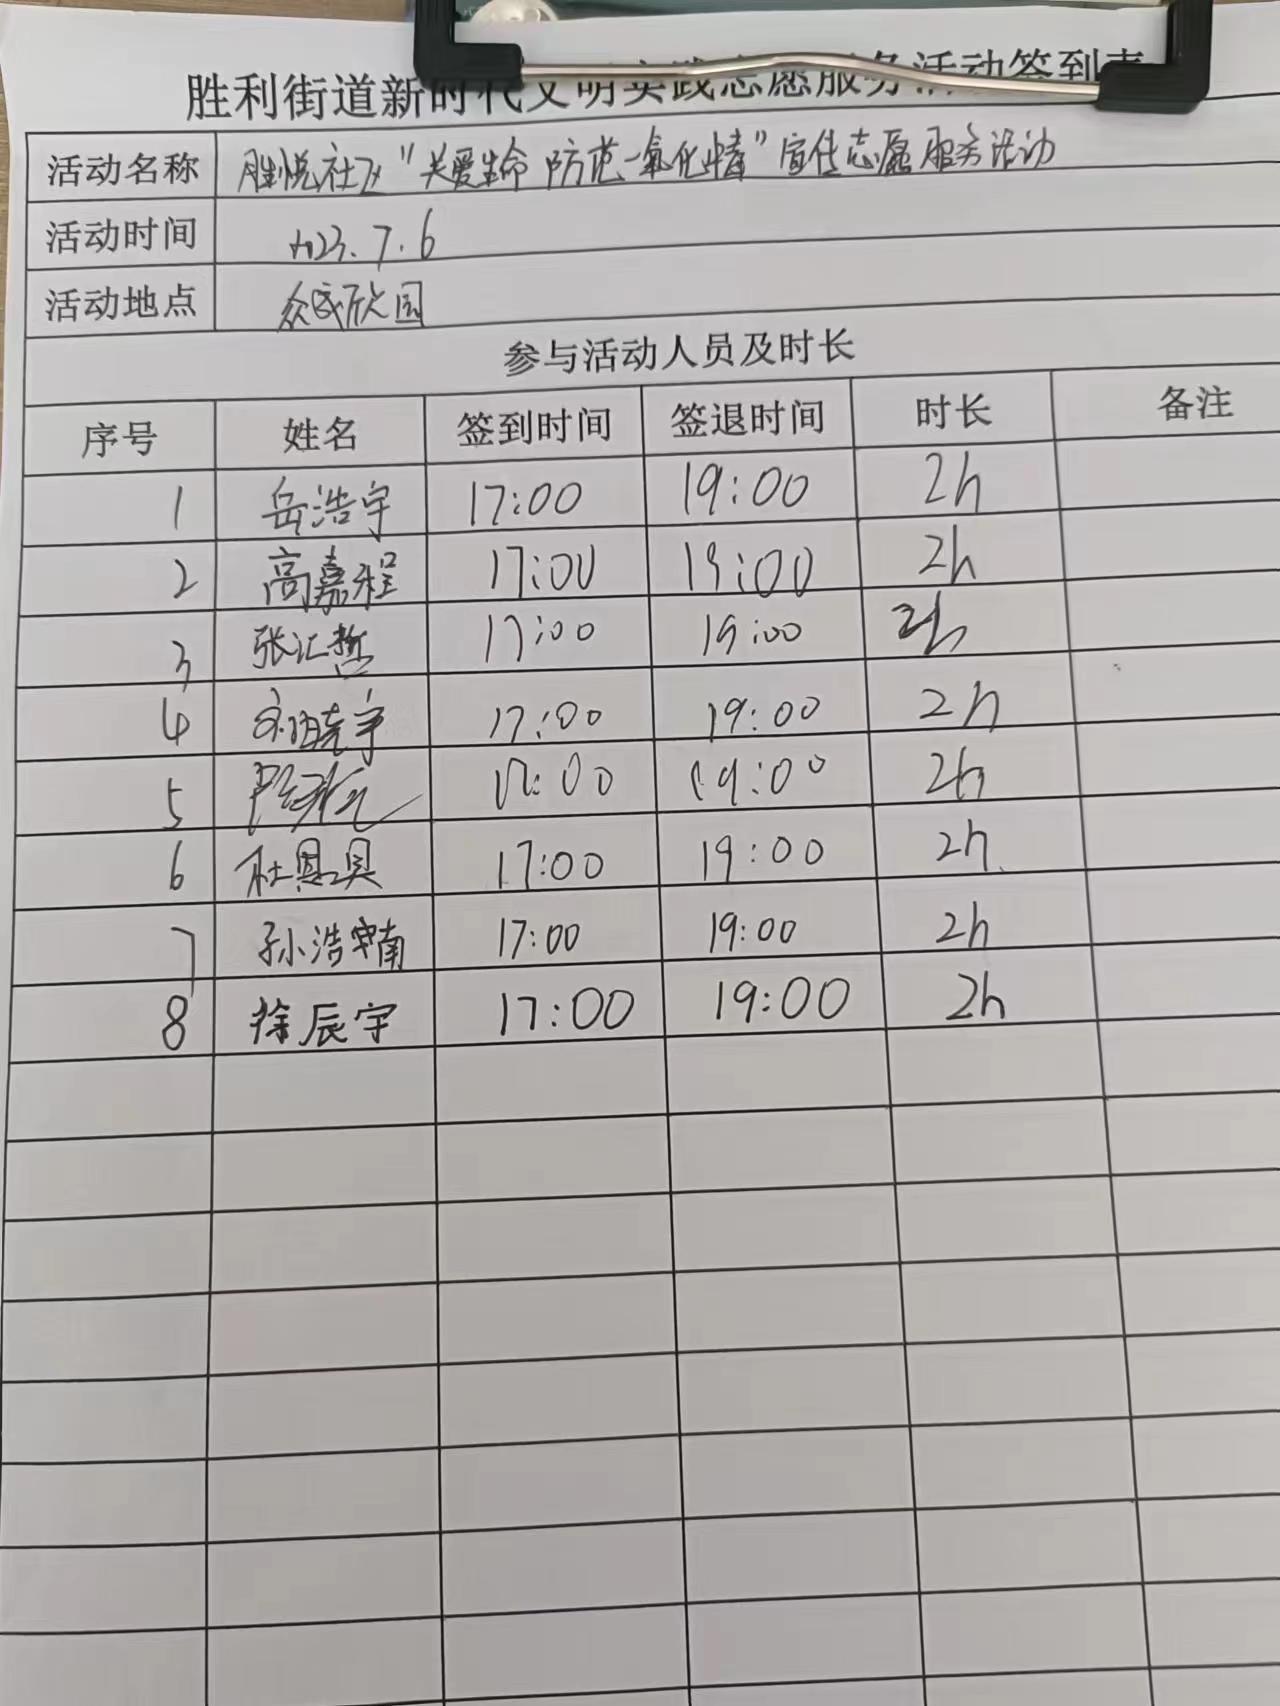 胜利街道新时代文明实践志愿服务活动签到表
活动名称 胜悦社区"关爱生命 防范一氧化碳"宣传志愿服务活动
活动时间 2023.7.6
活动地点 众成欣园
参与活动人员及时长
序号 姓名 签到时间 签退时间 时长 备注
1 岳浩宇 17:00 19:00 2h
2 高嘉程 17:00 19:00 2h
3 张汇哲 17:00 19:00 2h
4 17:00 19:00 2h
5 17:00 19:00 2h
6 杜恩具 17:00 19:00 2h
7 孙浩楠 17:00 19:00 2h
8 徐辰宇 17:00 19:00 2h